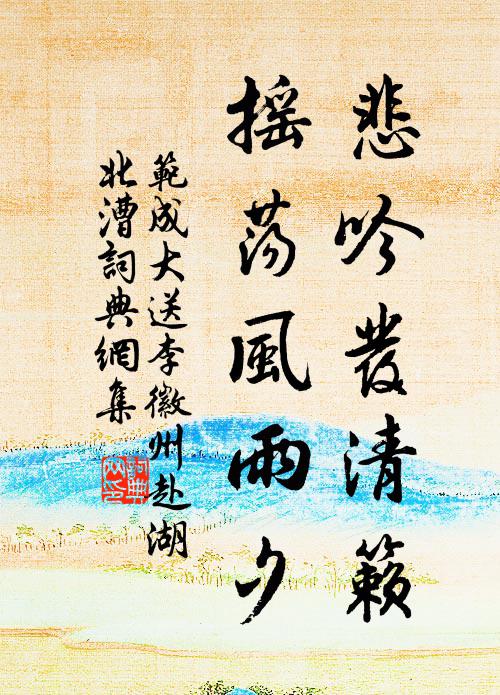 悲吟發清籟
搖蕩風雨夕
範成大送李徽州赴湖
北漕詞典網集